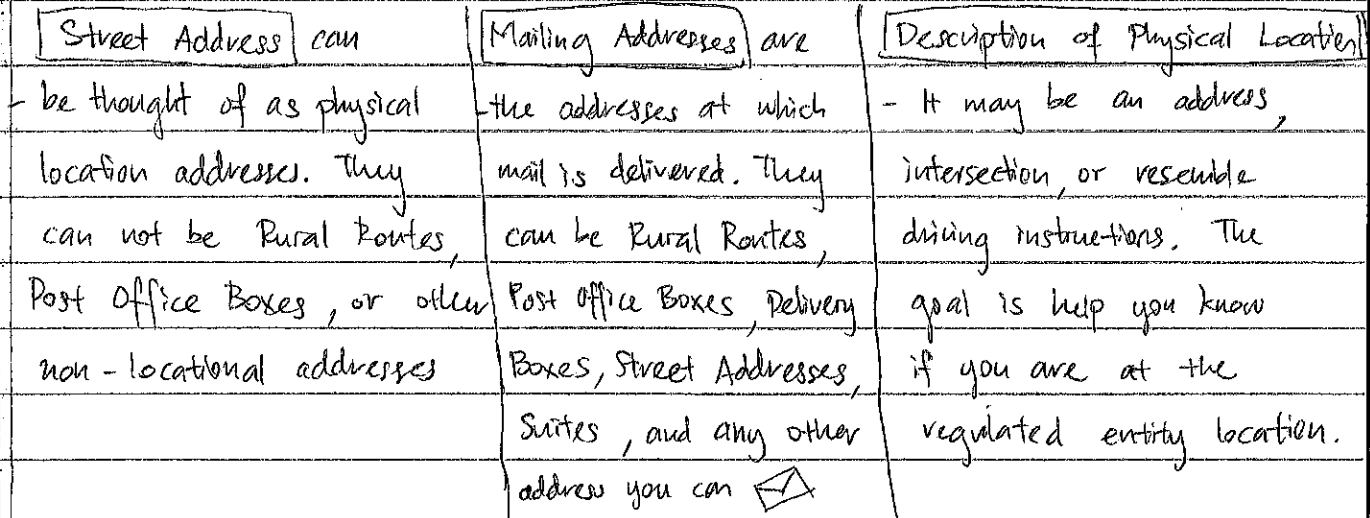 Street Address can
- be thought of as physical
location addresses. They
can not be Rural Routes,
Post Office Boxes, or other
non-locational addresses
Mailing Addresses are
- the addresses at which
mail is delivered. They
can be Rural Routes,
Post Office Boxes, Delivery
Boxes, Street Addresses,
Suites, and any other
address you can
Description of Physical Location
- It may be an address,
intersection, or resemble
driving instructions. The
goal is help you know
if you are at the
regulated entity location.